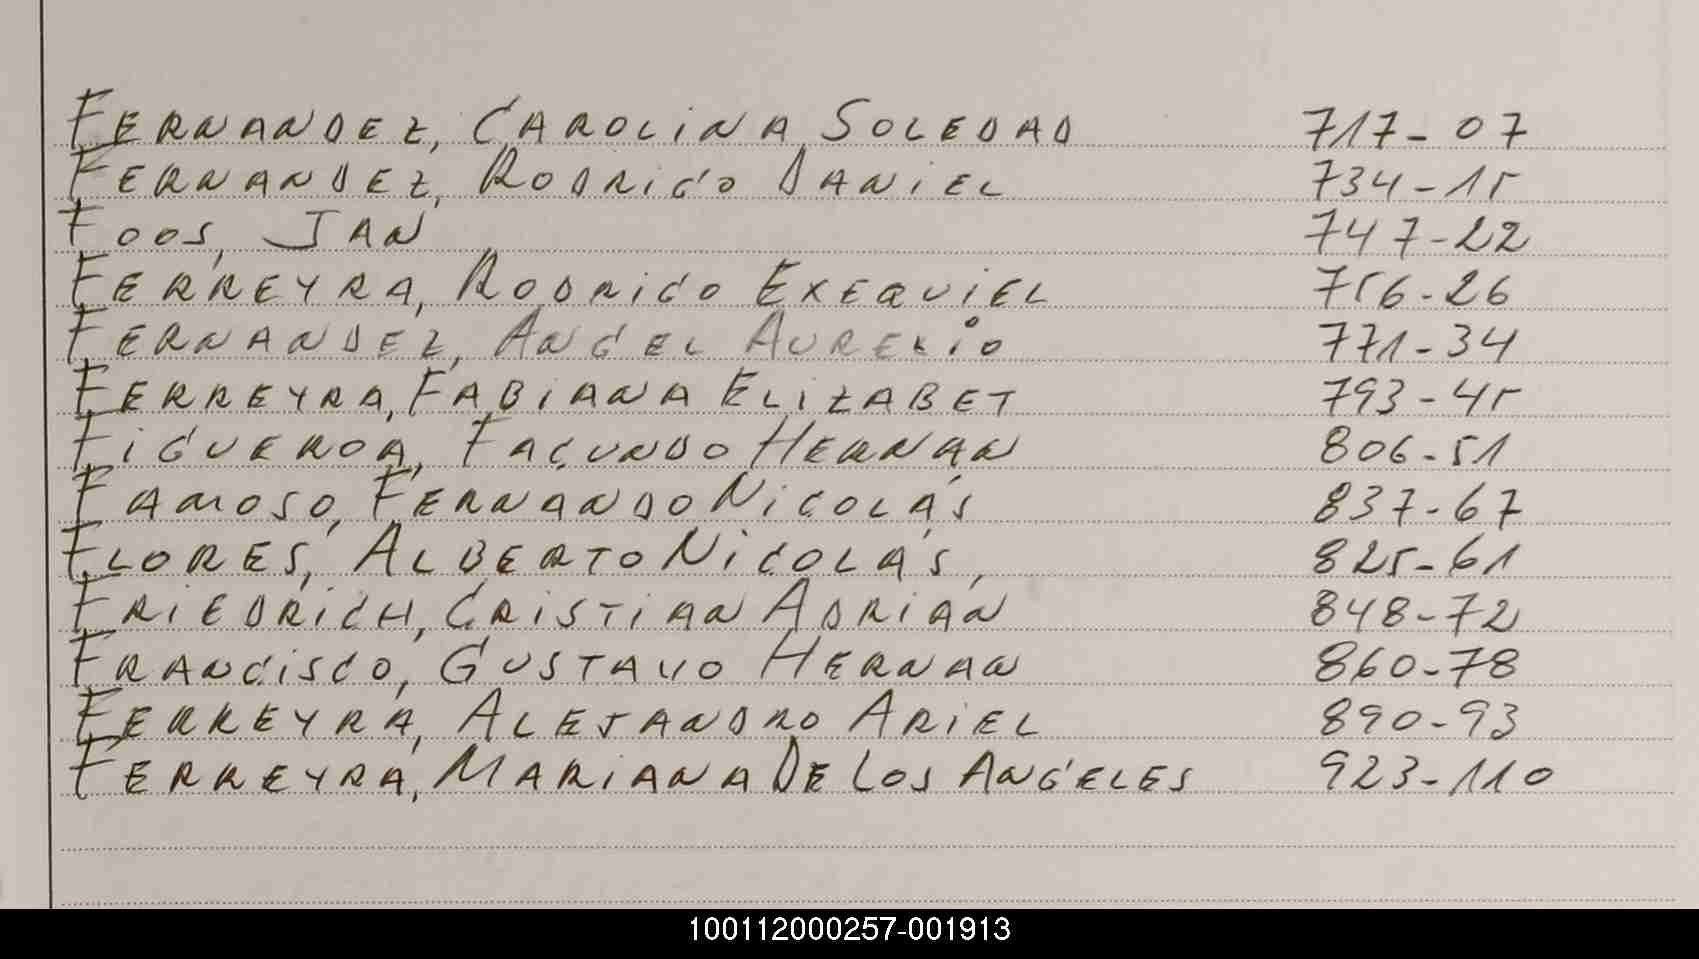 FERNANDEZ, CAROLINA SOLEDAD 717-07
FERNANDEZ, RODRIGO DANIEL 734-15
FOOS, JAN 747-22
FERREYRA, RODRIGO EXEQUIEL 756-26
FERNANDEZ, ANGEL AURELIO 771-34
FERREYRA, FABIANA ELIZABET 793-45
FIGUEROA, FACUNDO HERNAN 806-51
FAMOSO, FERNANDO NICOLÁS 837-67
FLORES, ALBERTO NICOLÁS, 825-61
FRIEDRICH, CRISTIAN ADRIÁN 848-72
FRANCISCO, GUSTAVO HERNAN 860-78
FERREYRA, ALEJANDRO ARIEL 890-93
FERREYRA, MARIANA DE LOS ANGELES 923-110
100112000257-001913